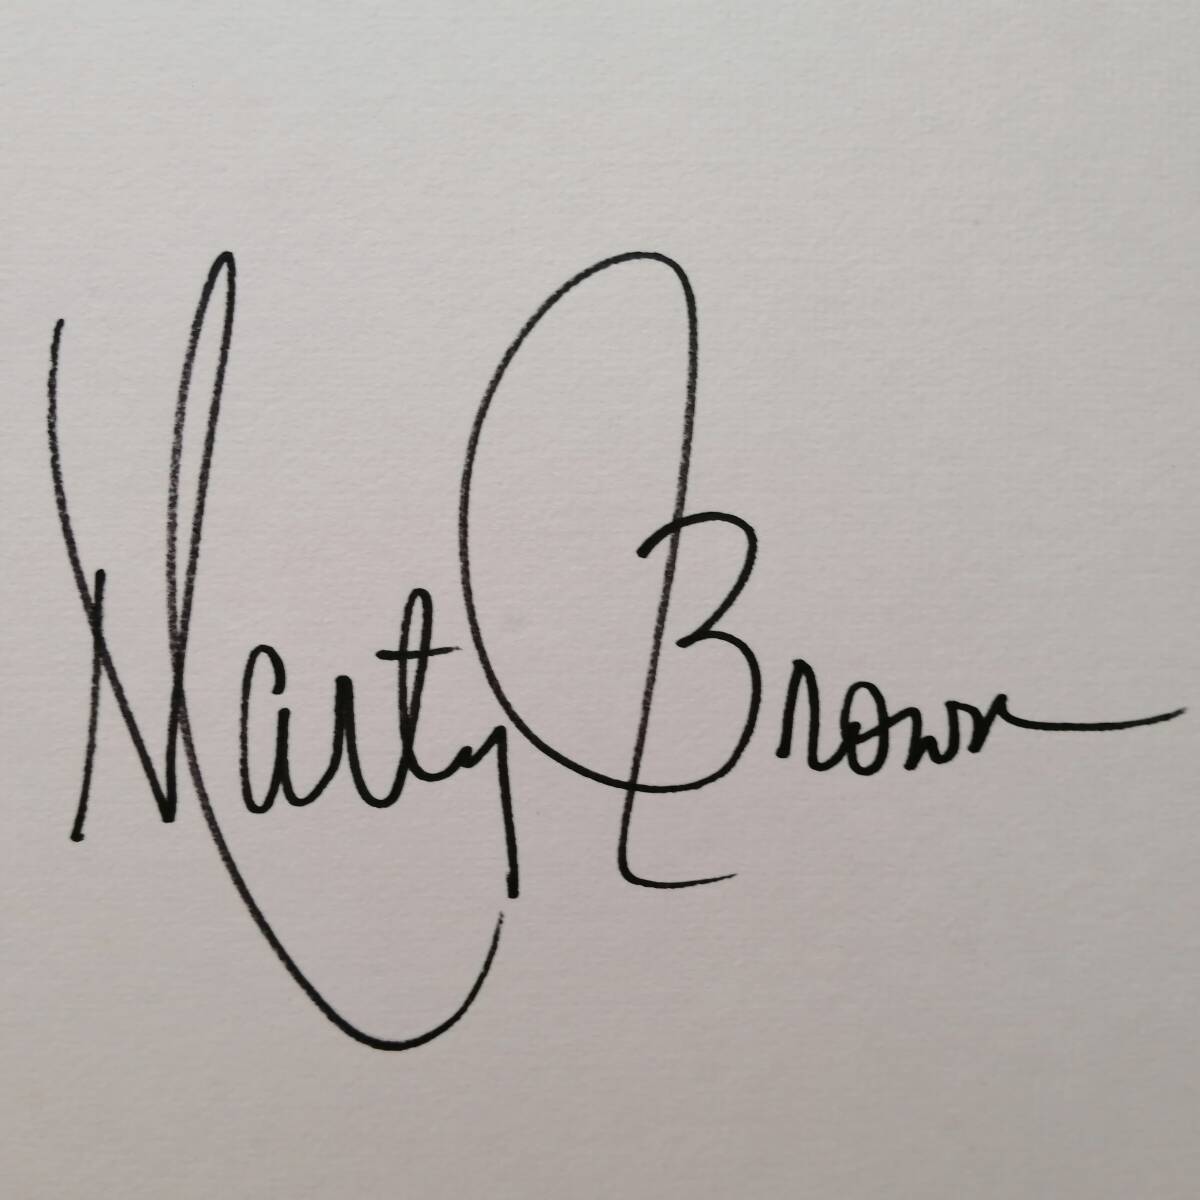 Marty Brown